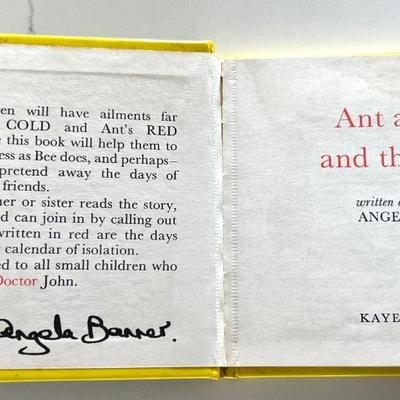 en will have ailments far
COLD and Ant's RED
e this book will help them to
ess as Bee does, and perhaps—
pretend away the days of
friends.
her or sister reads the story,
d can join in by calling out
written in red are the days
e calendar of isolation.
ed to all small children who
Doctor John.
Angela Banner.
Ant a
and th
written a
ANGE
KAYE